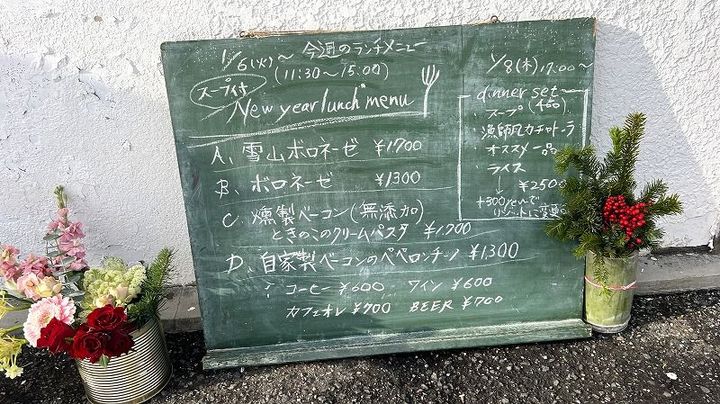 今週のランチメニュー
1/6(火)～
(11:30～15:00)
スープ付
New year lunch menu
A. 雪山ボロネーゼ ¥1700
B. ボロネーゼ ¥1300
C. 燻製ベーコン(無添加)
ときのこのクリームパスタ ¥1,700
D. 自家製ベーコンのペペロンチーノ ¥1,300
コーヒー ¥600 ワイン ¥600
カフェオレ ¥700 BEER ¥700
1/8(木)17:00～
dinner set
・スープ
・漁師風カチャトーラ
・オススメ一品
・ライス
→ ¥2500
+300えんで
リゾットに変更